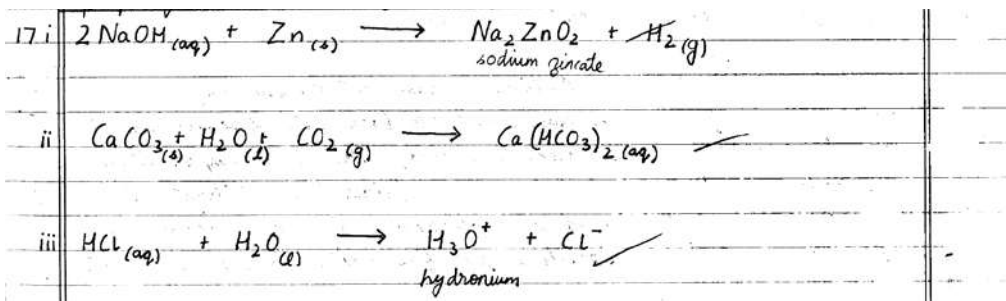 17 i 2 NaOH (aq) + Zn (s) ⟶ Na₂ZnO₂ + H₂ (g)
sodium zincate
ii CaCO₃ (s) + H₂O (l) + CO₂ (g) ⟶ Ca(HCO₃)₂ (aq)
iii HCl (aq) + H₂O (l) ⟶ H₃O⁺ + Cl⁻
hydronium